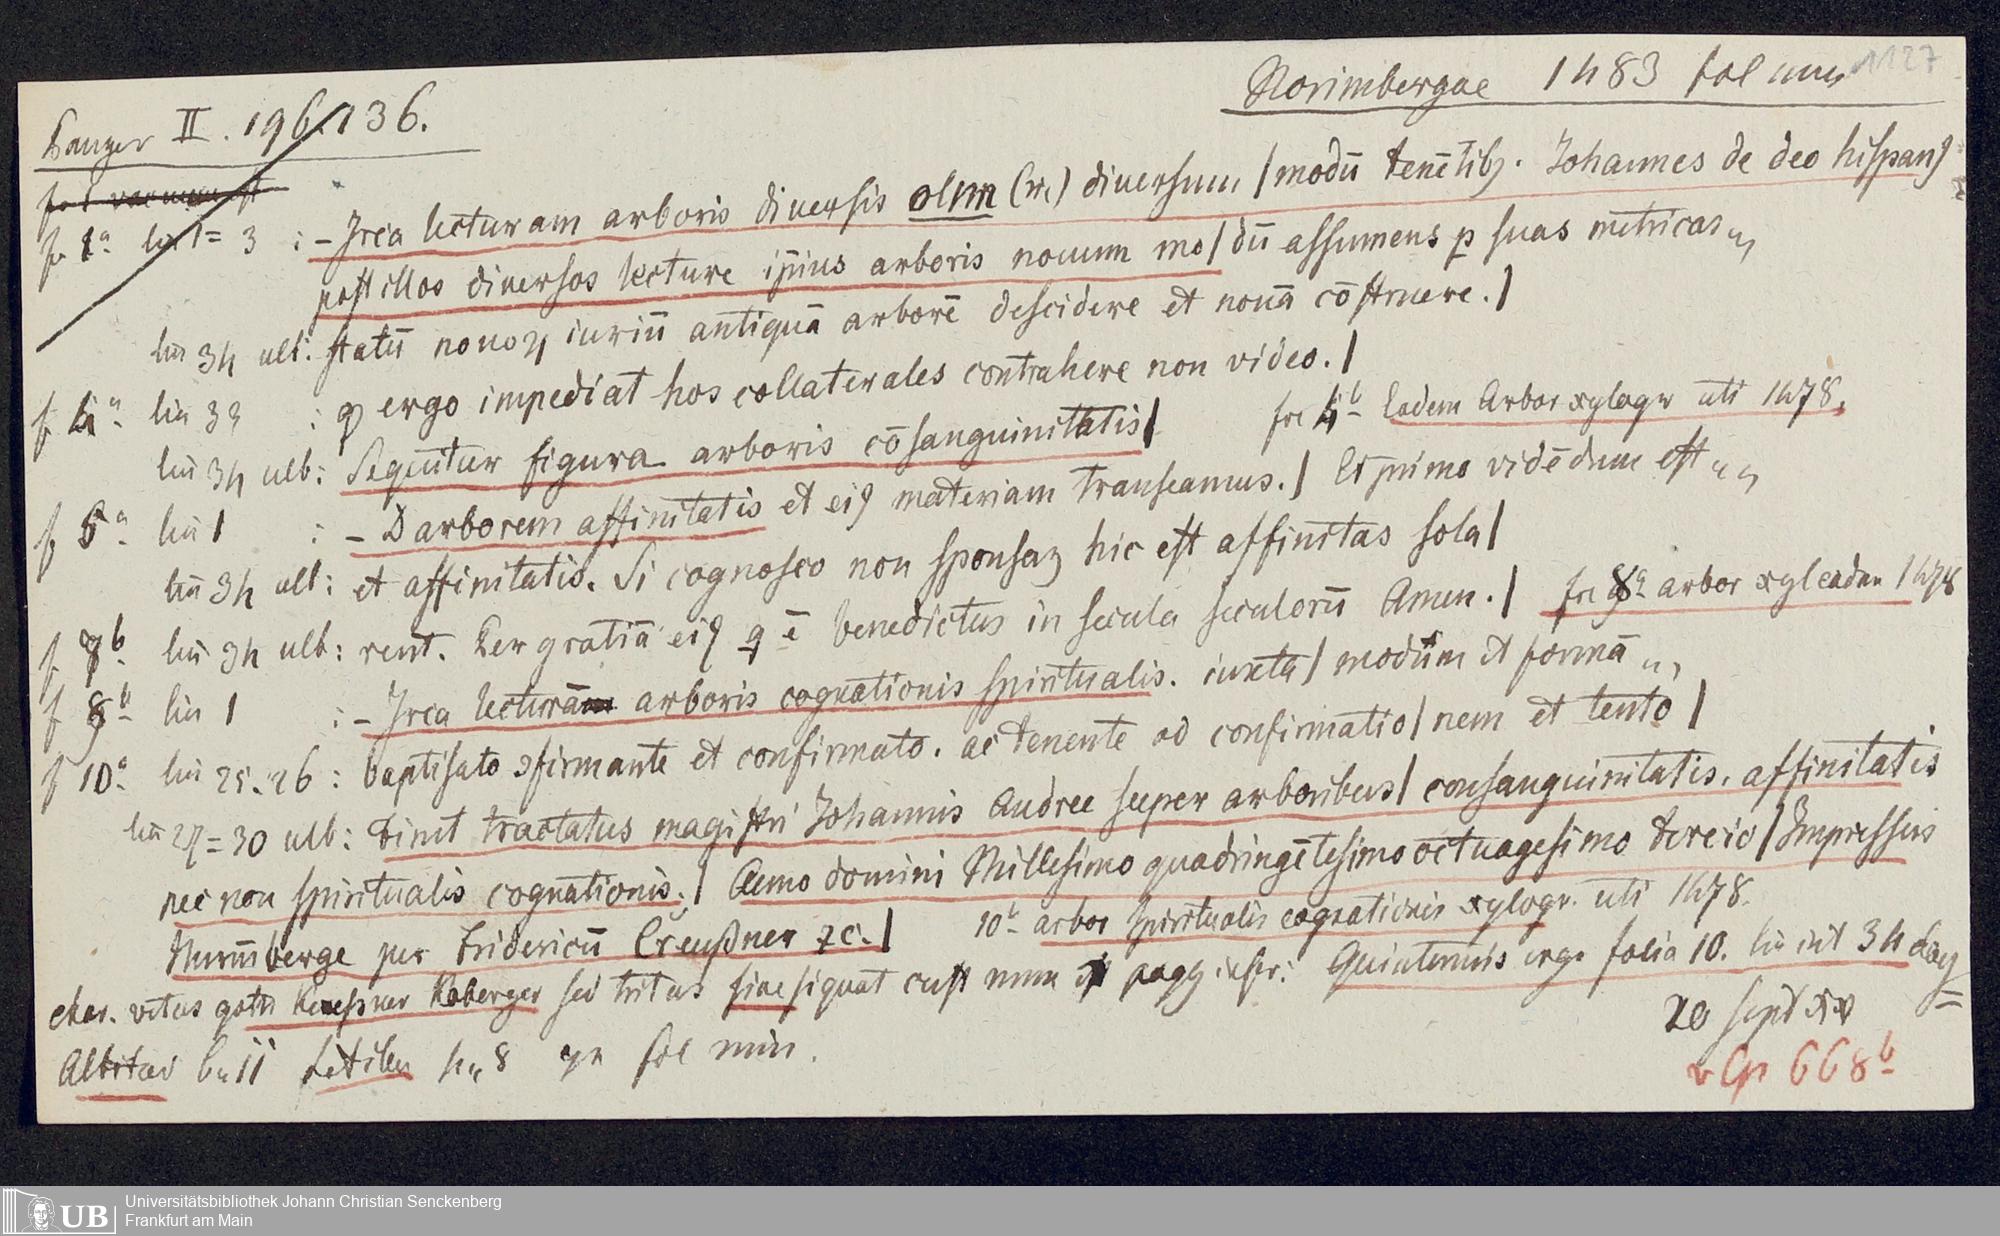 Norimbergae 1483 fol min 1127
Panzer II. 196.136.
fo 1a lin 1=3 : - Jrca lecturam arboris diuersis olim (sic) diuersum / modū tenētibꝫ. Johannes de deo hispanꝰ
postillos diuersos lecture ip̄ius arboris nouum mo/dū assumens p suas metricas „„
lin 34 ult: statū nouoꝝ iuriū antiquā arborē descidere et nouā cōstruere./
f 4a lin 33 : q ergo impediat hos collaterales contrahere non video./
lin 34 ulb: Sequitur figura arboris cōsanguinitatis/ fol 4b Eadem Arbor xylogr uti 1478.
f 5a lin 1 : - D arborem affinitatis et eiꝰ materiam transeamus./ Et primo vidēdum est „„
lin 34 ult: et affinitatis. Si cognosco non sponsaꝫ hic est affinitas sola/
f 7b lin 34 ulb: rent. Per gratiā eiꝰ q ē benedictus in secula seculorū Amen./ fol 8a arbor xyl eadem 1478
f 8b lin 1 : - Jrca lecturā arboris cognationis spiritualis. iuxta / modum et formā „„
f 10a lin 25.26 : baptisato ꝯfirmante et confirmato. ac tenente ad confirmatio/nem et tento/
lin 27=30 ulb: Finit tractatus magistri Johannis Andree super arboribus/ consanguinitatis. affinitatis
nec non spiritualis cognationis:/ Anno domini Millesimo quadringētesimo octuagesimo tercio/ Impressus
Nurmberge per Fridericū Creußner ꝛc./ 10b arbor spiritualis cognationis xylogr. uti 1478.
char. vetus goth Kreußner Koberger sed tritus sine signat cust num et pagg. inscr: Quinternus ergo folia 10. lin int 34
20 Sept
fol min.
v Cp 668b
UB Universitätsbibliothek Johann Christian Senckenberg
Frankfurt am Main